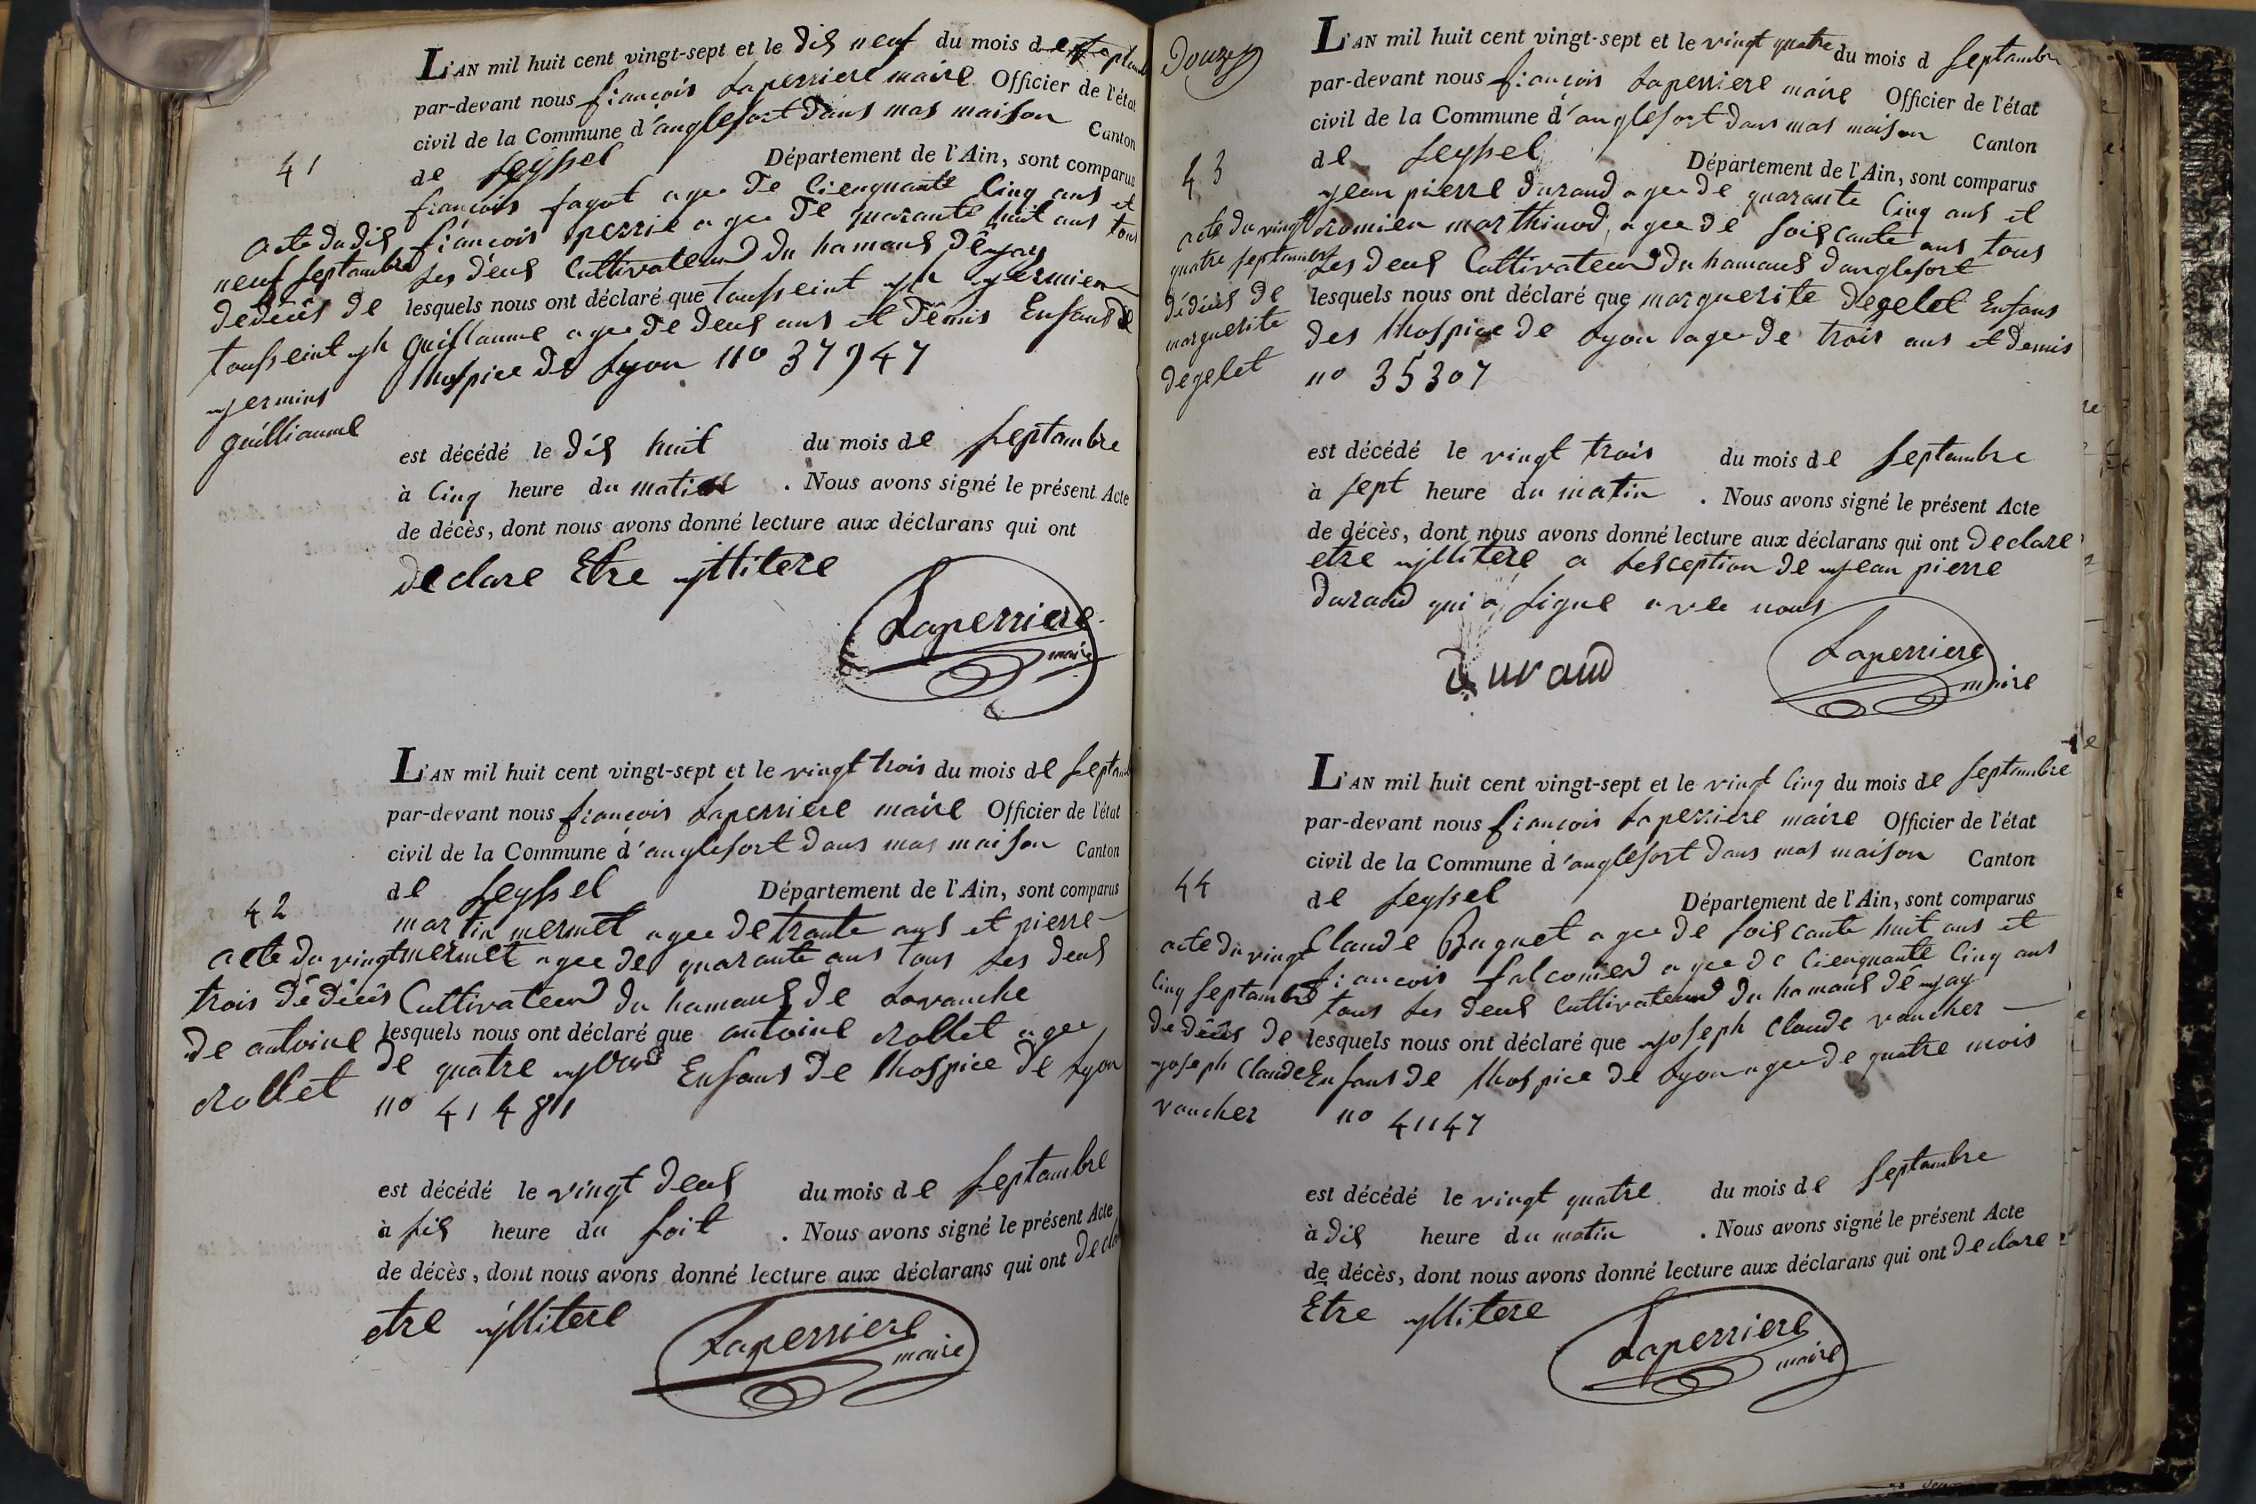 L'AN mil huit cent vingt-sept et le dix neuf du mois d septambre
par-devant nous françois Laperriere maire Officier de l'état
civil de la Commune d'anglefort dans mas maison Canton
de seyssel Département de l'Ain, sont comparus
41
françois fagot agee de cienquante cinq ans et
françois perrie agee de quarante huit ans tous
Les deux Cultivateur du hamaux
lesquels nous ont déclaré que tousseint
guillaume agee de deux ans et demis Enfans de
lhospice de Lyon no 37947
acte du dix
neuf septambre
dedécès de
tousseint
guilliaume
est décédé le dix huit du mois de septambre
à cinq heure du matin . Nous avons signé le présent Acte
de décès, dont nous avons donné lecture aux déclarans qui ont
declare Etre yllitere
Laperriere
maire
L'AN mil huit cent vingt-sept et le vingt trois du mois de septambre
par-devant nous françois Laperriere maire Officier de l'état
civil de la Commune d'anglefort dans mas maison Canton
de seyssel Département de l'Ain, sont comparus
42
martin mermet agee de trante ans et pierre
mermet agee de quarante ans tous Les deux
Cultivateur du hamaux de Lavanche
lesquels nous ont déclaré que antoine rollet agee
de quatre jour Enfans de lhospice de Lyon
no 41481
acte du vingt
trois dédécès
de antoine
rollet
est décédé le vingt deux du mois de septambre
à six heure du soir . Nous avons signé le présent Acte
de décès, dont nous avons donné lecture aux déclarans qui ont declare
etre yllitere
Laperriere
maire
douze
L'AN mil huit cent vingt-sept et le vingt quatre du mois d septambre
par-devant nous françois Laperriere maire Officier de l'état
civil de la Commune d'anglefort dans mas maison Canton
de seyssel Département de l'Ain, sont comparus
43
jean pierre durand agee de quarante cinq ans et
romien marthinod agee de soixcante ans tous
Les deux Cultivateur du hamaux danglefort
lesquels nous ont déclaré que marguerite degelet Enfans
des lhospice de Lyon agee de trois ans et demis
no 35307
acte du vingt
quatre septambre
dédécès de
marguerite
degelet
est décédé le vingt trois du mois de septambre
à sept heure du matin . Nous avons signé le présent Acte
de décès, dont nous avons donné lecture aux déclarans qui ont declare
etre yllitere a Lexception de jean pierre
durand qui a signe avec nous
durand
Laperriere
maire
L'AN mil huit cent vingt-sept et le vingt cinq du mois de septambre
par-devant nous françois Laperriere maire Officier de l'état
civil de la Commune d'anglefort dans mas maison Canton
de seyssel Département de l'Ain, sont comparus
44
Claude Buguet agee de soixcante huit ans et
françois falconier agee de cienquante cinq ans
tous Les deux Cultivateur du hamaux
lesquels nous ont déclaré que joseph Claude vaucher
Enfans de lhospice de Lyon agee de quatre mois
no 41147
acte du vingt
cinq septambre
dedécès de
joseph Claude
vaucher
est décédé le vingt quatre du mois de septambre
à dix heure du matin . Nous avons signé le présent Acte
de décès, dont nous avons donné lecture aux déclarans qui ont declare
Etre yllitere
Laperriere
maire